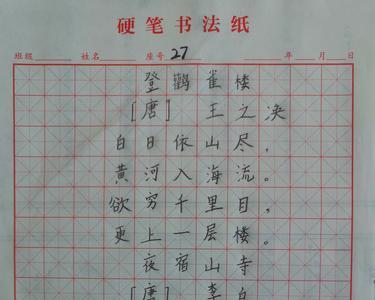 硬笔书法纸
班级 姓名 座号 27 年 月 日
登鹳雀楼
[唐] 王之涣
白日依山尽，
黄河入海流。
欲穷千里目，
更上一层楼。
夜宿山寺
[唐] 李白